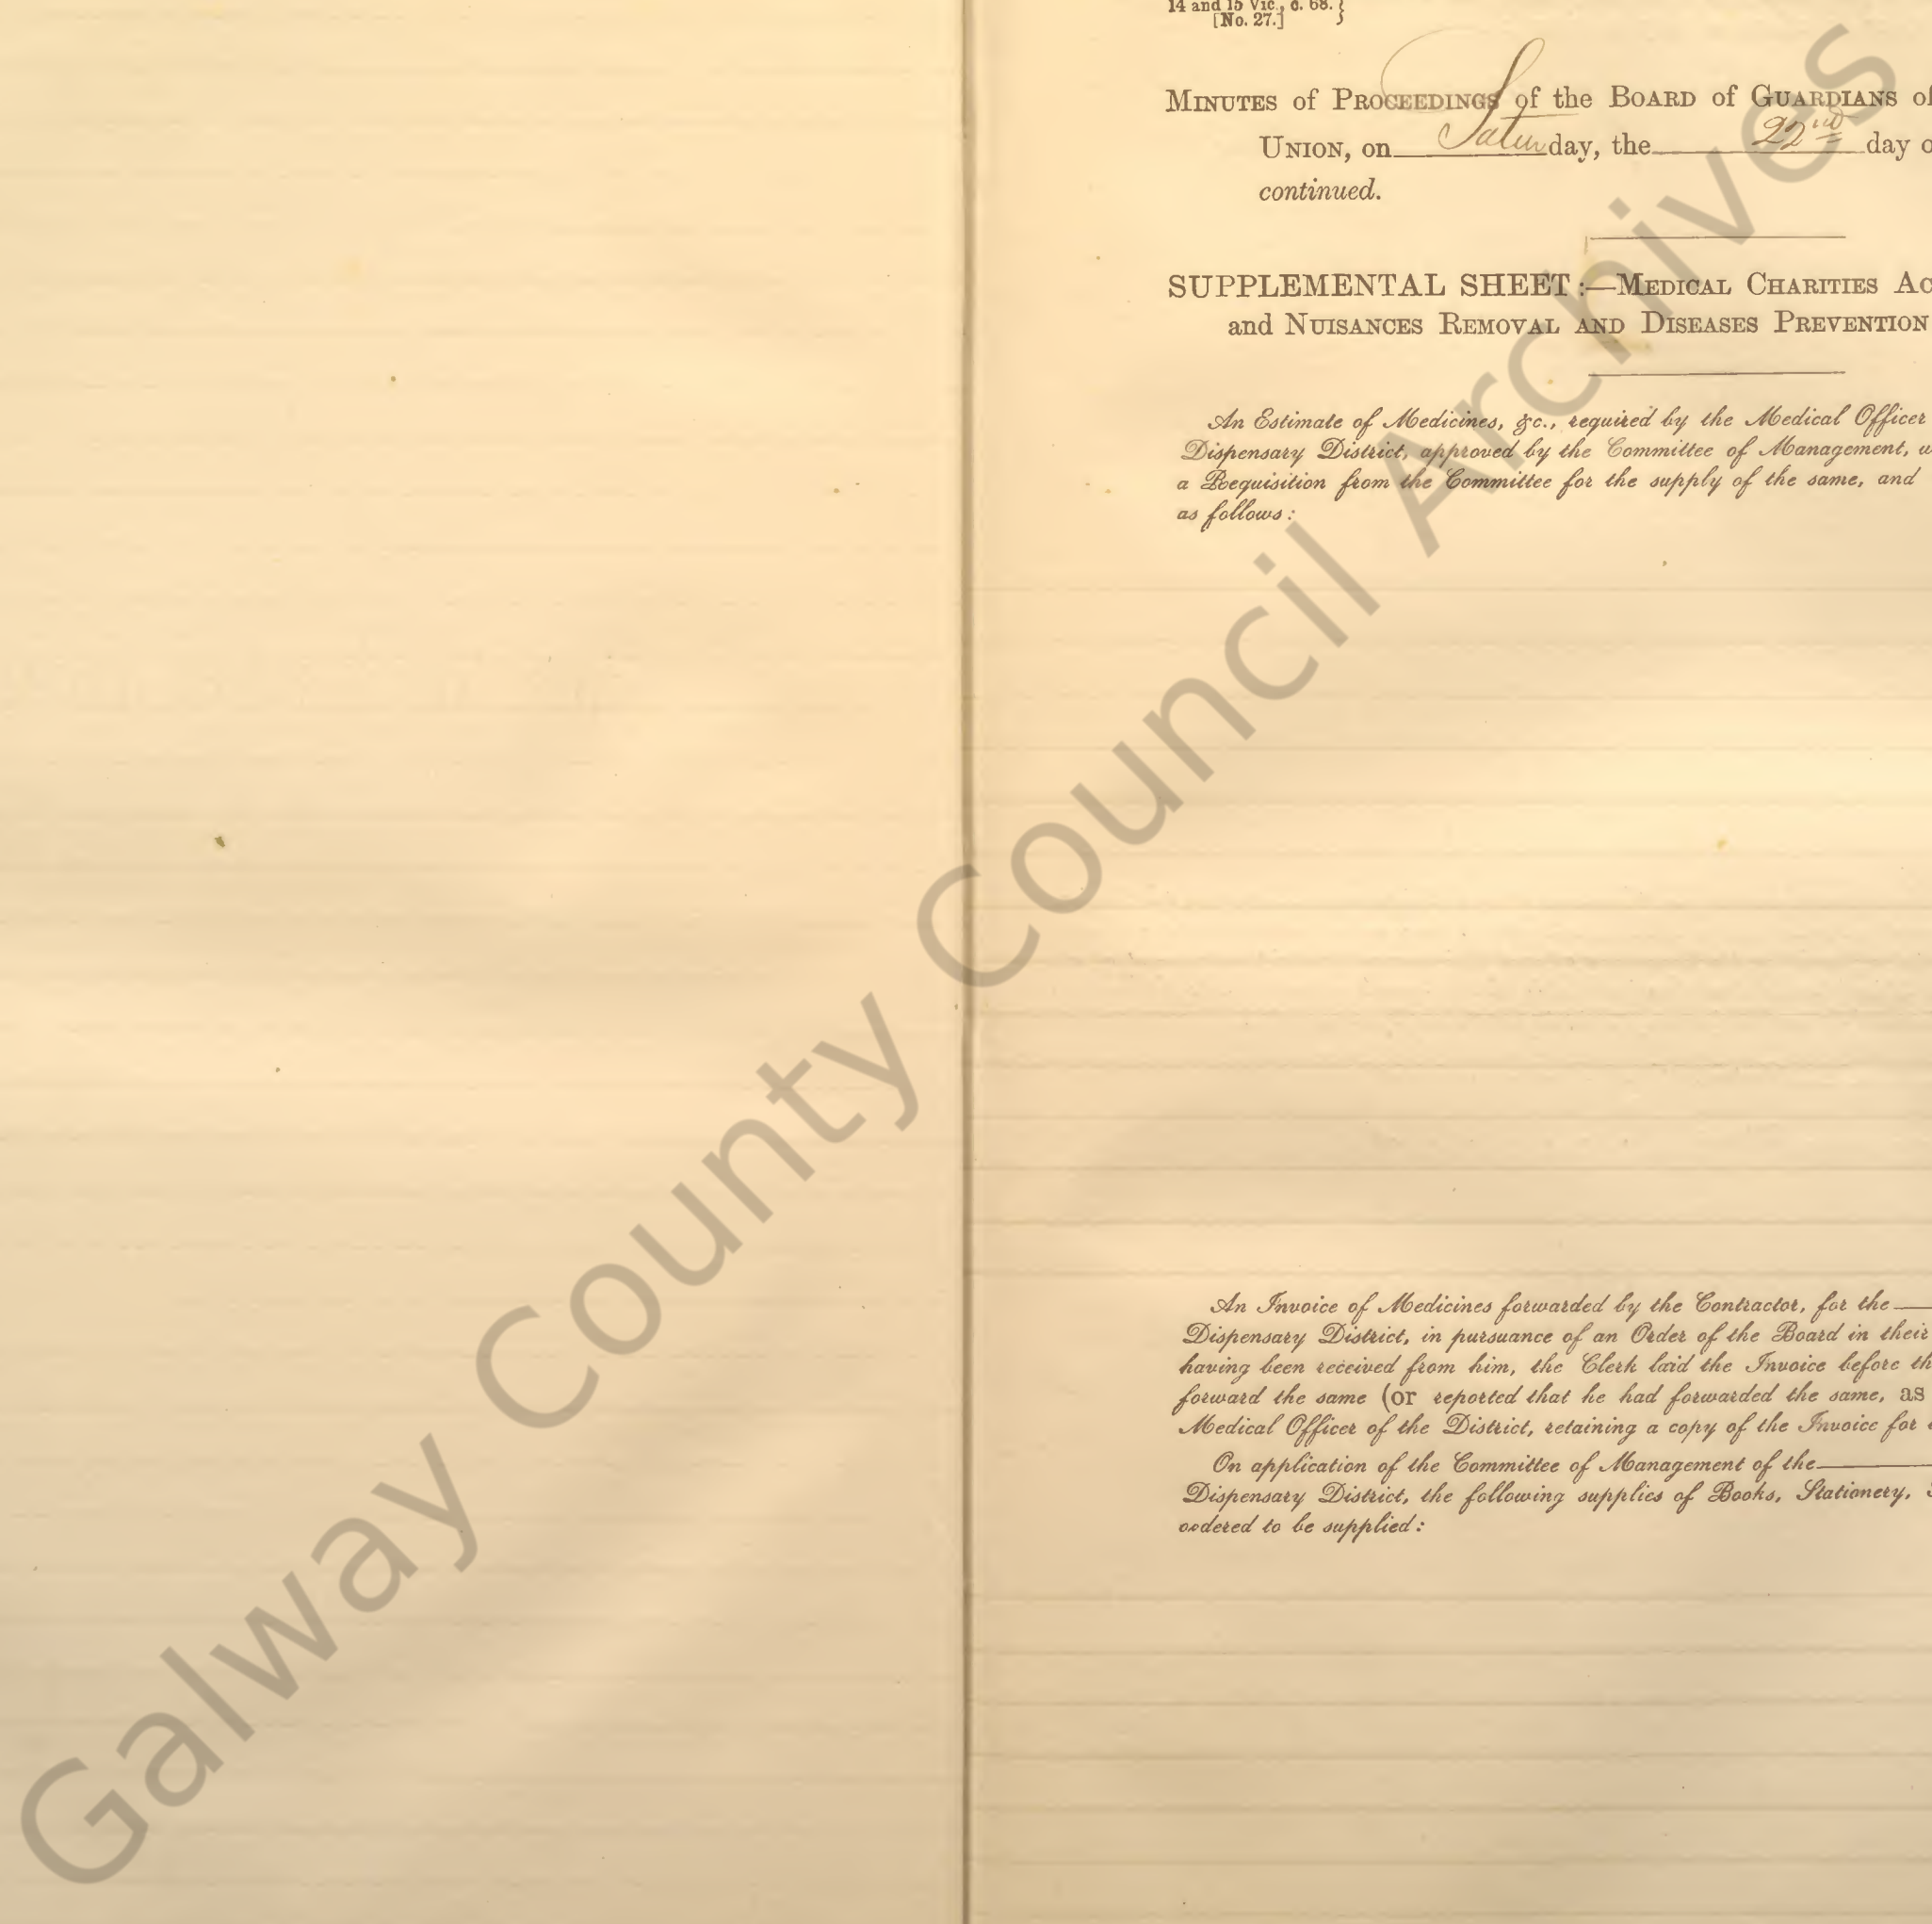 14 and 15 Vic., c. 68. }
[No. 27.]
MINUTES of PROCEEDINGS of the BOARD of GUARDIANS of
UNION, on Saturday, the 22nd day o
continued.
SUPPLEMENTAL SHEET:—MEDICAL CHARITIES AC
and NUISANCES REMOVAL AND DISEASES PREVENTION
An Estimate of Medicines, &c., required by the Medical Officer
Dispensary District, approved by the Committee of Management, w
a Requisition from the Committee for the supply of the same, and
as follows:
An Invoice of Medicines forwarded by the Contractor, for the
Dispensary District, in pursuance of an Order of the Board in their
having been received from him, the Clerk laid the Invoice before th
forward the same (or reported that he had forwarded the same, as
Medical Officer of the District, retaining a copy of the Invoice for
On application of the Committee of Management of the
Dispensary District, the following supplies of Books, Stationery,
ordered to be supplied:
Galway County Council Archives